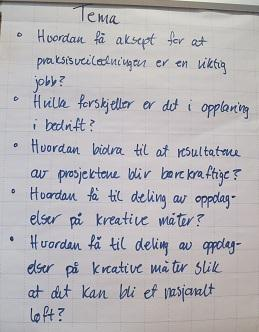 Tema
• Hvordan få aksept for at
praksisveiledningen er en viktig
jobb?
• Hvilke forskjeller er det i opplæring
i bedrift?
• Hvordan bidra til at resultatene
av prosjektene blir bærekraftige?
• Hvordan få til deling av oppdag-
elser på kreative måter?
• Hvordan få til deling av oppdag-
elser på kreative måter slik
at det kan bli et nasjonalt
løft?